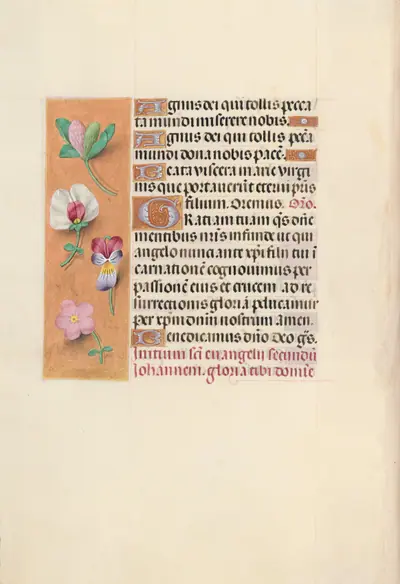 Agnus dei qui tollis pecca
ta mundi miserere nobis.
Agnus dei qui tollis pccã
mundi dona nobis pacē.
Beata viscera marie virgi
nis que portauerunt eterni pr̄is
filium. Oremus. Or̄o.
Gratiam tuam qs̄ dn̄e
mentibus nr̄is infunde ut qui
angelo nunciante xp̄i filii tui i
carnationē cognouimus per
passionē eius et crucem ad re
surrectionis gloriā perducamur
per xp̄m dn̄m nostrum amen.
Benedicamus dn̄o Deo gr̄s.
Initium sc̄i euangelii secundū
Johannem. gloria tibi domīe